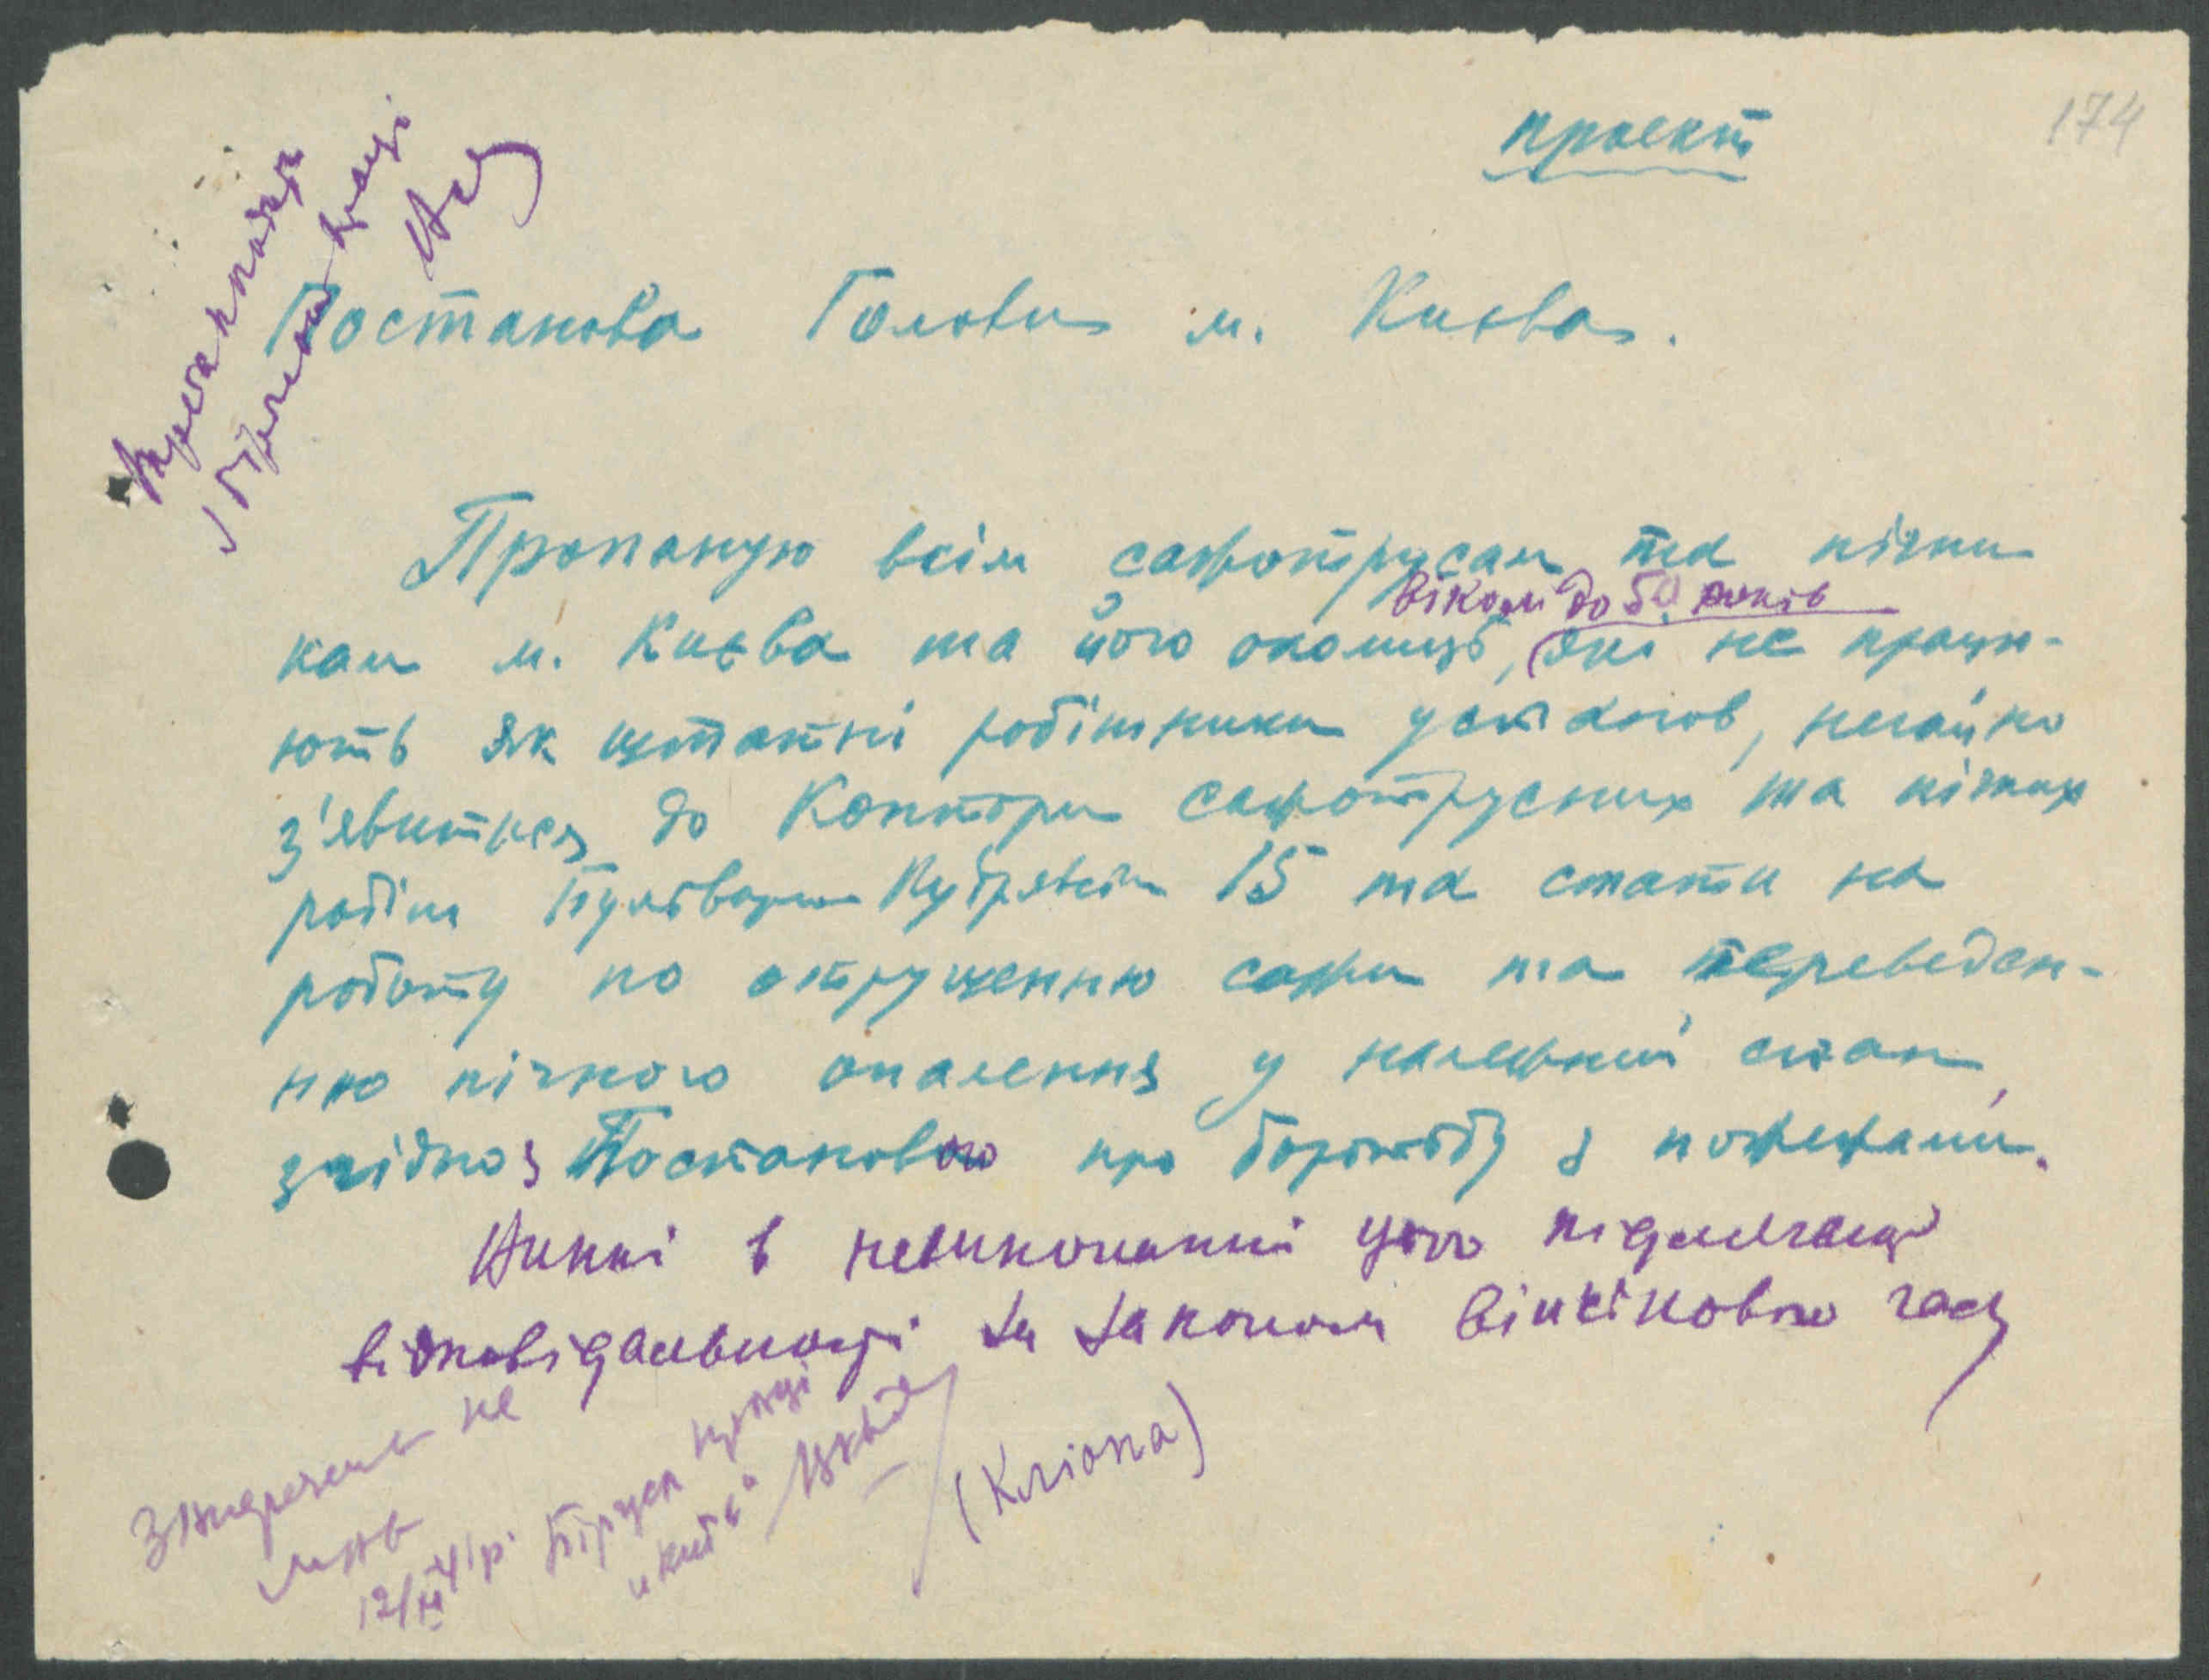 174
проект
Постанова Голови м. Києва.
Пропаную всім сажотрусам та пічни
віком до 50 років
кам м. Києва та його околиць, які не працю-
ють як штатні робітники установ, негайно
з'явитися до Контори сажотрусних та пічних
робіт Бульварно Кудрявська 15 та стати на
роботу по отрушенню сажи та переведен-
ню пічного опалення у належний стан,
згідно з Постановою про боротьбу з пожежами.
Винні в невиконанні цього підлягають
відповідальности за законом військового часу
не
12/XI 41 р. Біржа праці
(Кліона)